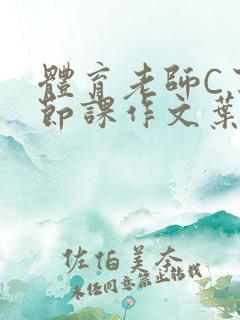 體育老師C下
節課作文葉
佐伯美奈
未经同意禁止转载